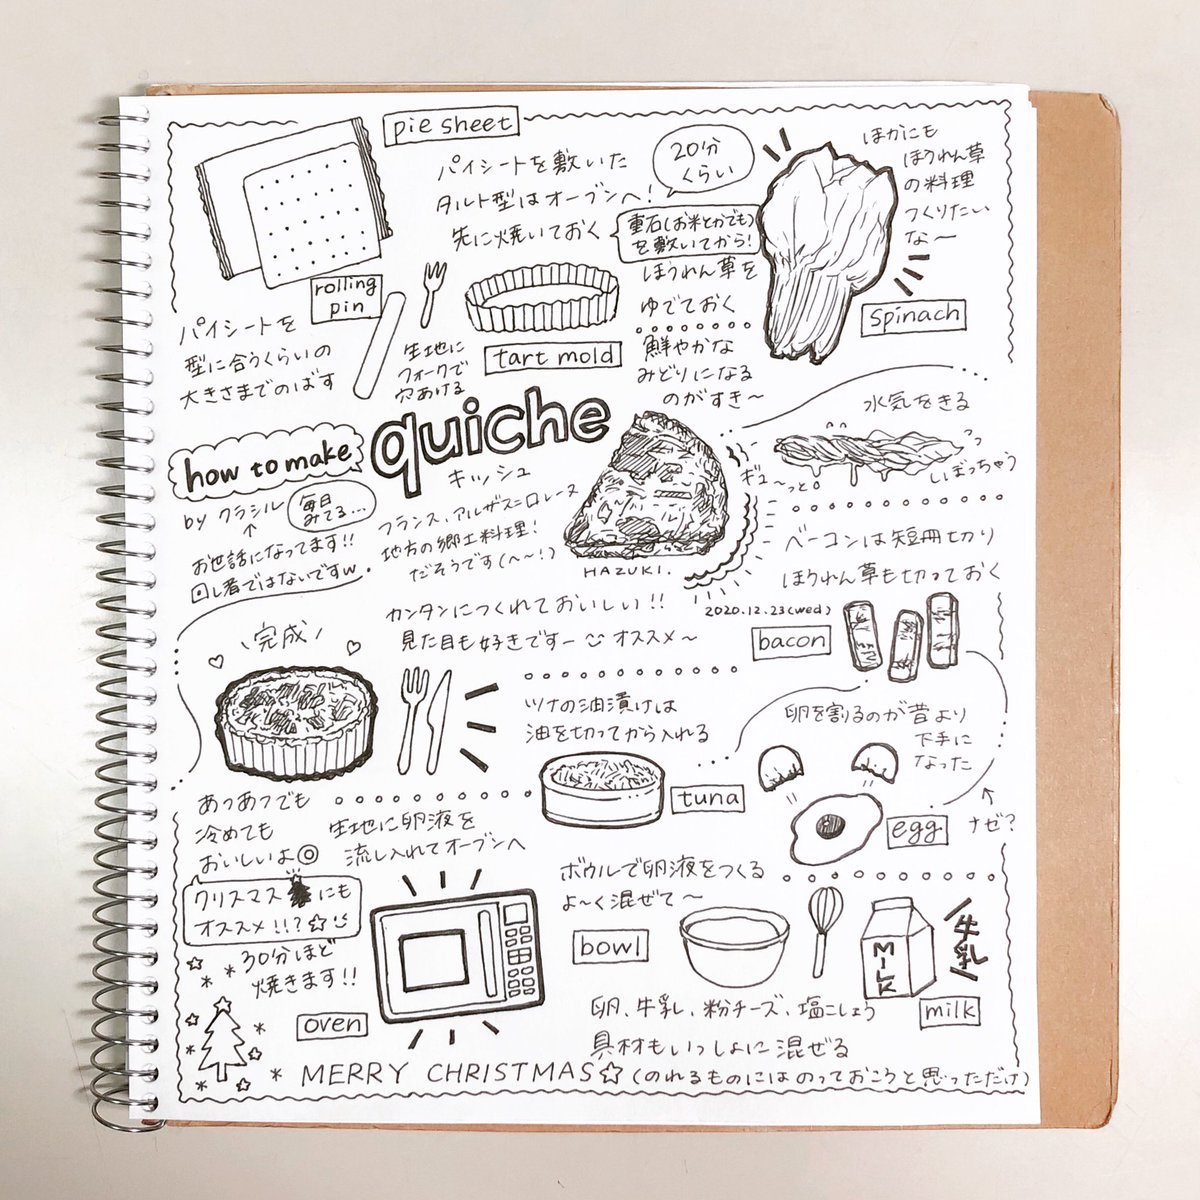 pie sheet
パイシートを敷いた
タルト型はオーブンへ!
先に焼いておく
20分
くらい
重石(お米とかでも)
を敷いてから!
ほかにも
ほうれん草
の料理
つくりたい
な〜
rolling
pin
パイシートを
型に合うくらいの
大きさまでのばす
生地に
フォークで
穴あける
tart mold
ほうれん草を
ゆでておく
鮮やかな
みどりになる
のがすき〜
spinach
水気をきる
ギュ〜っと。
しぼっちゃう
how to make
quiche
キッシュ
by クラシル
毎日
みてる...
お世話になってます!!
回し者ではないですw.
フランス、アルザス=ロレーヌ
地方の郷土料理!
だそうです(へ〜!)
HAZUKI.
2020.12.23(wed)
カンタンにつくれておいしい!!
見た目も好きですー オススメ〜
ベーコンは短冊切り
ほうれん草も切っておく
bacon
完成
ツナの油漬けは
油を切ってから入れる
tuna
卵を割るのが昔より
下手に
なった
ナゼ?
egg
あつあつでも
冷めても
おいしいよ◎
クリスマス にも
オススメ!!?☆
生地に卵液を
流し入れてオーブンへ
30分ほど
焼きます!!
oven
ボウルで卵液をつくる
よ〜く混ぜて〜
bowl
MILK
牛乳
milk
卵、牛乳、粉チーズ、塩こしょう
具材もいっしょに混ぜる
MERRY CHRISTMAS☆(のれるものにはのっておこうと思っただけ)